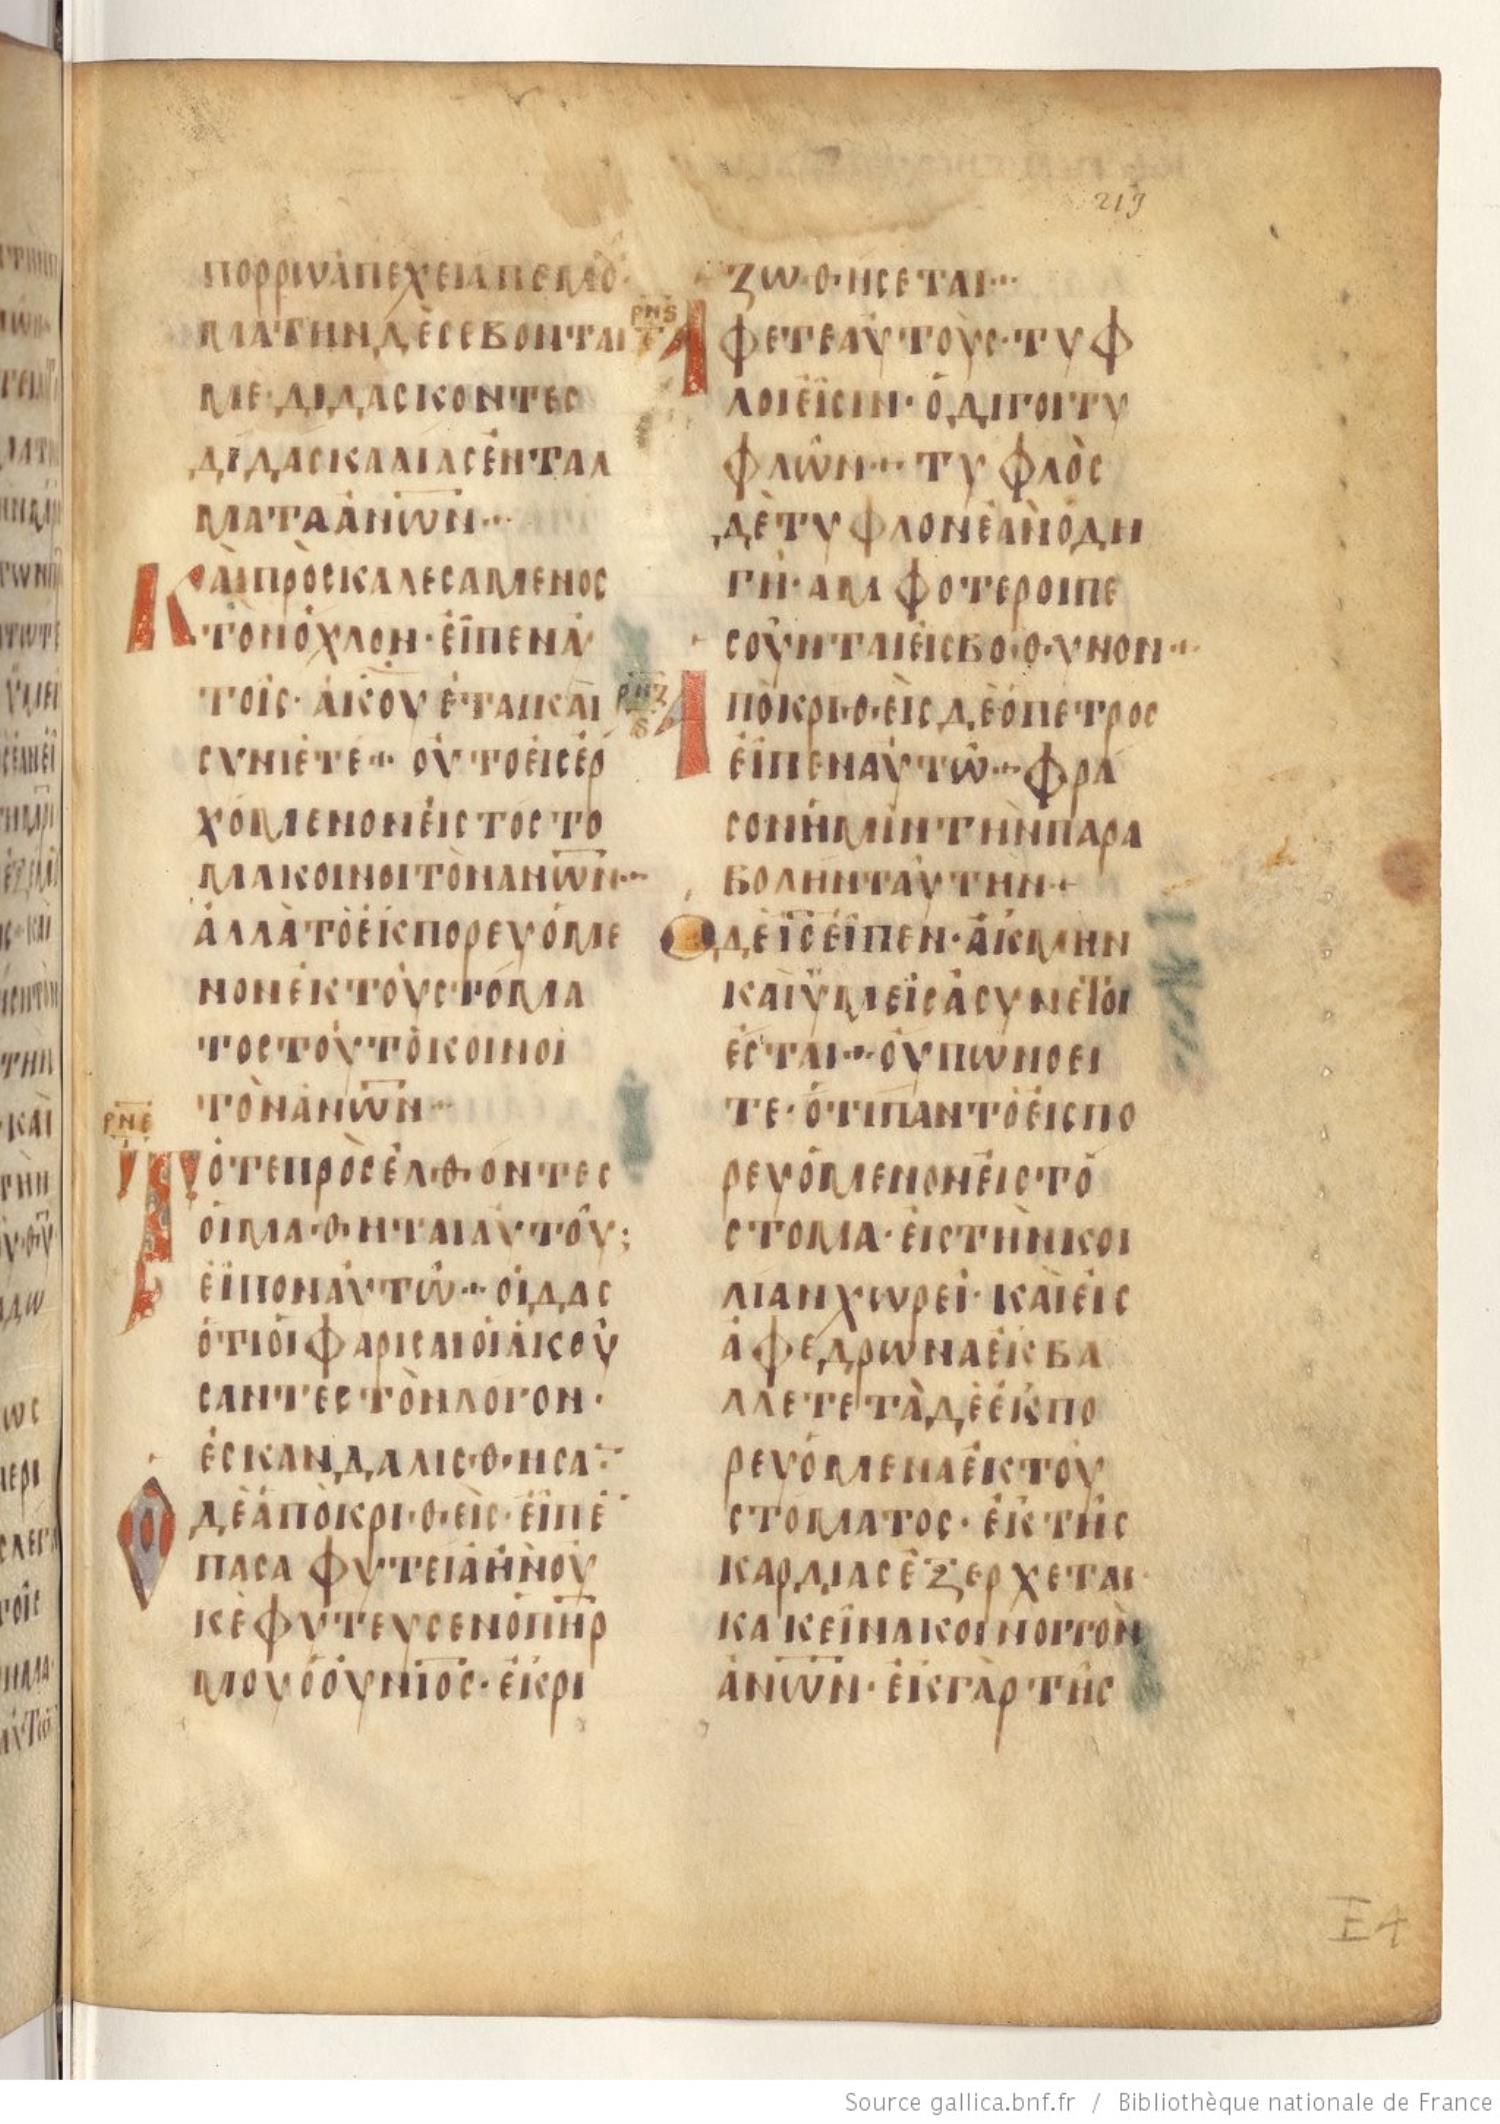 219
ΠΟΡΡΩΑΠΕΧΕΙΑΠΕΜΟ·
ΜΑΤΗΝΔΕΣΕΒΟΝΤΑΙ
ΜΕ·ΔΙΔΑΣΚΟΝΤΕΣ
ΔΙΔΑΣΚΑΛΙΑΣΕΝΤΑΛ
ΜΑΤΑΑΝΩΝ··
ΚΑΙΠΡΟΣΚΑΛΕΣΑΜΕΝΟΣ
ΤΟΝΟΧΛΟΝ·ΕΙΠΕΝΑΥ
ΤΟΙΣ·ΑΚΟΥΕΤΑΙΚΑΙ
ΣΥΝΙΕΤΕ·· ΟΥΤΟΕΙΣΕΡ
ΧΟΜΕΝΟΝΕΙΣΤΟΣΤΟ
ΜΑΚΟΙΝΟΙΤΟΝΑΝΩΝ··
ΑΛΛΑΤΟΕΚΠΟΡΕΥΟΜΕ
ΝΟΝΕΚΤΟΥΣΤΟΜΑ
ΤΟΣΤΟΥΤΟΚΟΙΝΟΙ
ΤΟΝΑΝΩΝ··
ΡΝΕ
ΤΟΤΕΠΡΟΣΕΛΘΟΝΤΕΣ
ΟΙΜΑΘΗΤΑΙΑΥΤΟΥ;
ΕΙΠΟΝΑΥΤΩ·· ΟΙΔΑΣ
ΟΤΙΟΙΦΑΡΙΣΑΙΟΙΑΚΟΥ
ΣΑΝΤΕΣΤΟΝΛΟΓΟΝ·
ΕΣΚΑΝΔΑΛΙΣΘΗΣΑ··
ΟΔΕΑΠΟΚΡΙΘΕΙΣ·ΕΙΠΕ
ΠΑΣΑΦΥΤΕΙΑΗΝΟΥ
ΚΕΦΥΤΕΥΣΕΝΟΠΗΡ
ΜΟΥΟΟΥΝΙΟΣ·ΕΚΡΙ
ΖΩΘΗΣΕΤΑΙ··
ΡΝϚ
ΑΦΕΤΕΑΥΤΟΥΣ·ΤΥΦ
ΛΟΙΕΙΣΙΝ·ΟΔΙΓΟΙΤΥ
ΦΛΩΝ·· ΤΥΦΛΟΣ
ΔΕΤΥΦΛΟΝΕΑΝΟΔΗ
ΓΗ·ΑΜΦΟΤΕΡΟΙΠΕ
ΣΟΥΝΤΑΙΕΙΣΒΟΘΥΝΟΝ··
ΡΝΖ
ΑΠΟΚΡΙΘΕΙΣΔΕΟΠΕΤΡΟΣ
ΕΙΠΕΝΑΥΤΩ··ΦΡΑ
ΣΟΝΗΜΙΝΤΗΝΠΑΡΑ
ΒΟΛΗΝΤΑΥΤΗΝ··
ΟΔΕΙΣΕΙΠΕΝ·ΑΚΜΗΝ
ΚΑΙΥΜΕΙΣΑΣΥΝΕΤΟΙ
ΕΣΤΑΙ··ΟΥΠΩΝΟΕΙ
ΤΕ·ΟΤΙΠΑΝΤΟΕΙΣΠΟ
ΡΕΥΟΜΕΝΟΝΕΙΣΤΟ
ΣΤΟΜΑ·ΕΙΣΤΗΝΚΟΙ
ΛΙΑΝΧΩΡΕΙ·ΚΑΙΕΙΣ
ΑΦΕΔΡΩΝΑΕΚΒΑ
ΛΛΕΤΕΤΑΔΕΕΚΠΟ
ΡΕΥΟΜΕΝΑΕΚΤΟΥ
ΣΤΟΜΑΤΟΣ·ΕΚΤΗΣ
ΚΑΡΔΙΑΣΕΞΕΡΧΕΤΑΙ
ΚΑΚΕΙΝΑΚΟΙΝΟΙΤΟΝ
ΑΝΩΝ·ΕΚΓΑΡΤΗΣ
E4
Source gallica.bnf.fr / Bibliothèque nationale de France